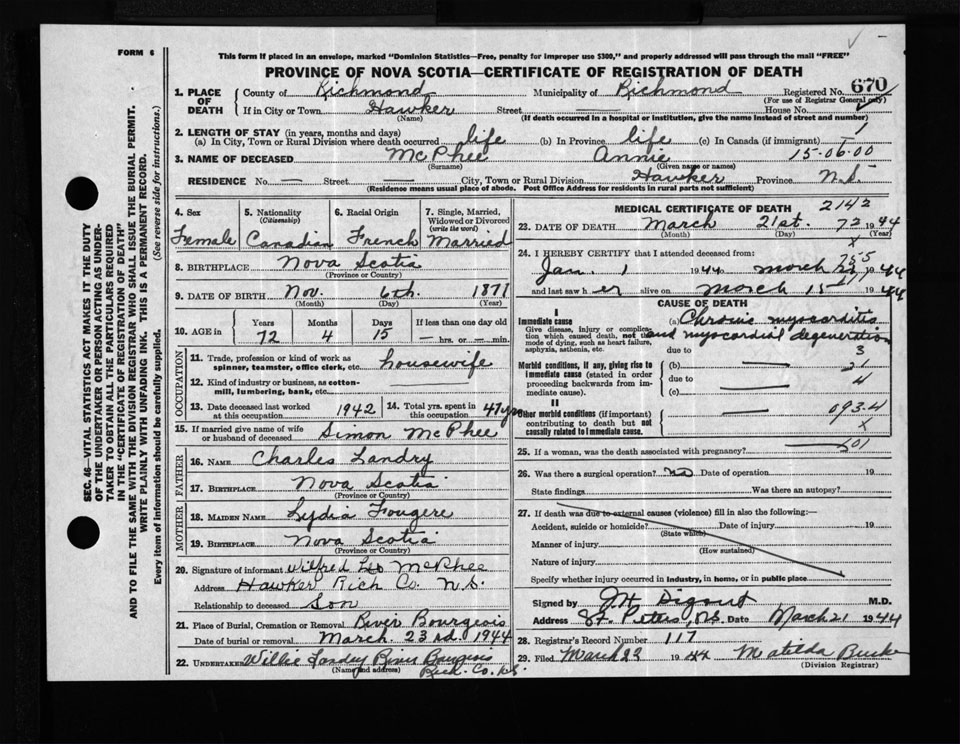 FORM 6
This form if placed in an envelope, marked "Dominion Statistics—Free, penalty for improper use $300," and properly addressed will pass through the mail "FREE"
PROVINCE OF NOVA SCOTIA—CERTIFICATE OF REGISTRATION OF DEATH
SEC. 46—VITAL STATISTICS ACT MAKES IT THE DUTY
OF THE UNDERTAKER OR PERSON ACTING AS UNDER-
TAKER TO OBTAIN ALL THE PARTICULARS REQUIRED
IN THE "CERTIFICATE OF REGISTRATION OF DEATH"
AND TO FILE THE SAME WITH THE DIVISION REGISTRAR WHO SHALL ISSUE THE BURIAL PERMIT.
WRITE PLAINLY WITH UNFADING INK. THIS IS A PERMANENT RECORD.
Every item of information should be carefully supplied. (See reverse side for instructions.)
1. PLACE OF DEATH County of Richmond Municipality of Richmond Registered No. 670
(For use of Registrar General only)
If in City or Town Hawker Street — House No.
(Name) (If death occurred in a hospital or institution, give the name instead of street and number)
2. LENGTH OF STAY (in years, months and days)
(a) In City, Town or Rural Division where death occurred life (b) In Province life (c) In Canada (if immigrant) —
3. NAME OF DECEASED McPhee Annie 15-06-00
(Surname) (Given name or names)
RESIDENCE No. — Street — City, Town or Rural Division Hawker Province N.S.
(Residence means usual place of abode. Post Office Address for residents in rural parts not sufficient)
4. Sex Female
5. Nationality (Citizenship) Canadian
6. Racial Origin French
7. Single, Married, Widowed or Divorced (write the word) Married
8. BIRTHPLACE Nova Scotia
(Province or Country)
9. DATE OF BIRTH Nov. 6th. 1871
(Month) (Day) (Year)
10. AGE in Years 72 Months 4 Days 15 If less than one day old — hrs. or — min.
OCCUPATION
11. Trade, profession or kind of work as spinner, teamster, office clerk, etc. housewife
12. Kind of industry or business, as cotton-mill, lumbering, bank, etc.
13. Date deceased last worked at this occupation 1942 14. Total yrs. spent in this occupation 47 yrs
15. If married give name of wife or husband of deceased Simon McPhee
FATHER
16. NAME Charles Landry
17. BIRTHPLACE Nova Scotia
(Province or Country)
MOTHER
18. MAIDEN NAME Lydia Fougere
19. BIRTHPLACE Nova Scotia
(Province or Country)
20. Signature of informant Wilfred Leo McPhee
Address Hawker Rich Co. N.S.
Relationship to deceased Son
21. Place of Burial, Cremation or Removal River Bourgeois
Date of burial or removal March. 23rd. 1944
22. UNDERTAKER Willie Landry River Bourgeois
(Name and address) Rich. Co. N.S.
MEDICAL CERTIFICATE OF DEATH 2142
23. DATE OF DEATH March 21st. 72 1944
(Month) (Day) (Year)
24. I HEREBY CERTIFY that I attended deceased from:
Jan. 1 1944 March 21, 1944
and last saw her alive on March 15 1944
CAUSE OF DEATH
I
Immediate cause
Give disease, injury or complication which caused death, not the mode of dying, such as heart failure, asphyxia, asthenia, etc.
(a) Chronic myocarditis
and myocardial degeneration
due to 3
Morbid conditions, if any, giving rise to immediate cause (stated in order proceeding backwards from immediate cause).
(b) — 21
due to 4
(c)
II
Other morbid conditions (if important) contributing to death but not causally related to immediate cause.
093.4
X
25. If a woman, was the death associated with pregnancy? 501
26. Was there a surgical operation? no Date of operation 19
State findings Was there an autopsy?
27. If death was due to external causes (violence) fill in also the following:—
Accident, suicide or homicide? Date of injury 19
(State which)
Manner of injury
(How sustained)
Nature of injury
Specify whether injury occurred in industry, in home, or in public place
Signed by J.H. Digout M.D.
Address St. Peters, N.S. Date March 21 1944
28. Registrar's Record Number 117
29. Filed March 23 1944 Matilda Burke
(Division Registrar)